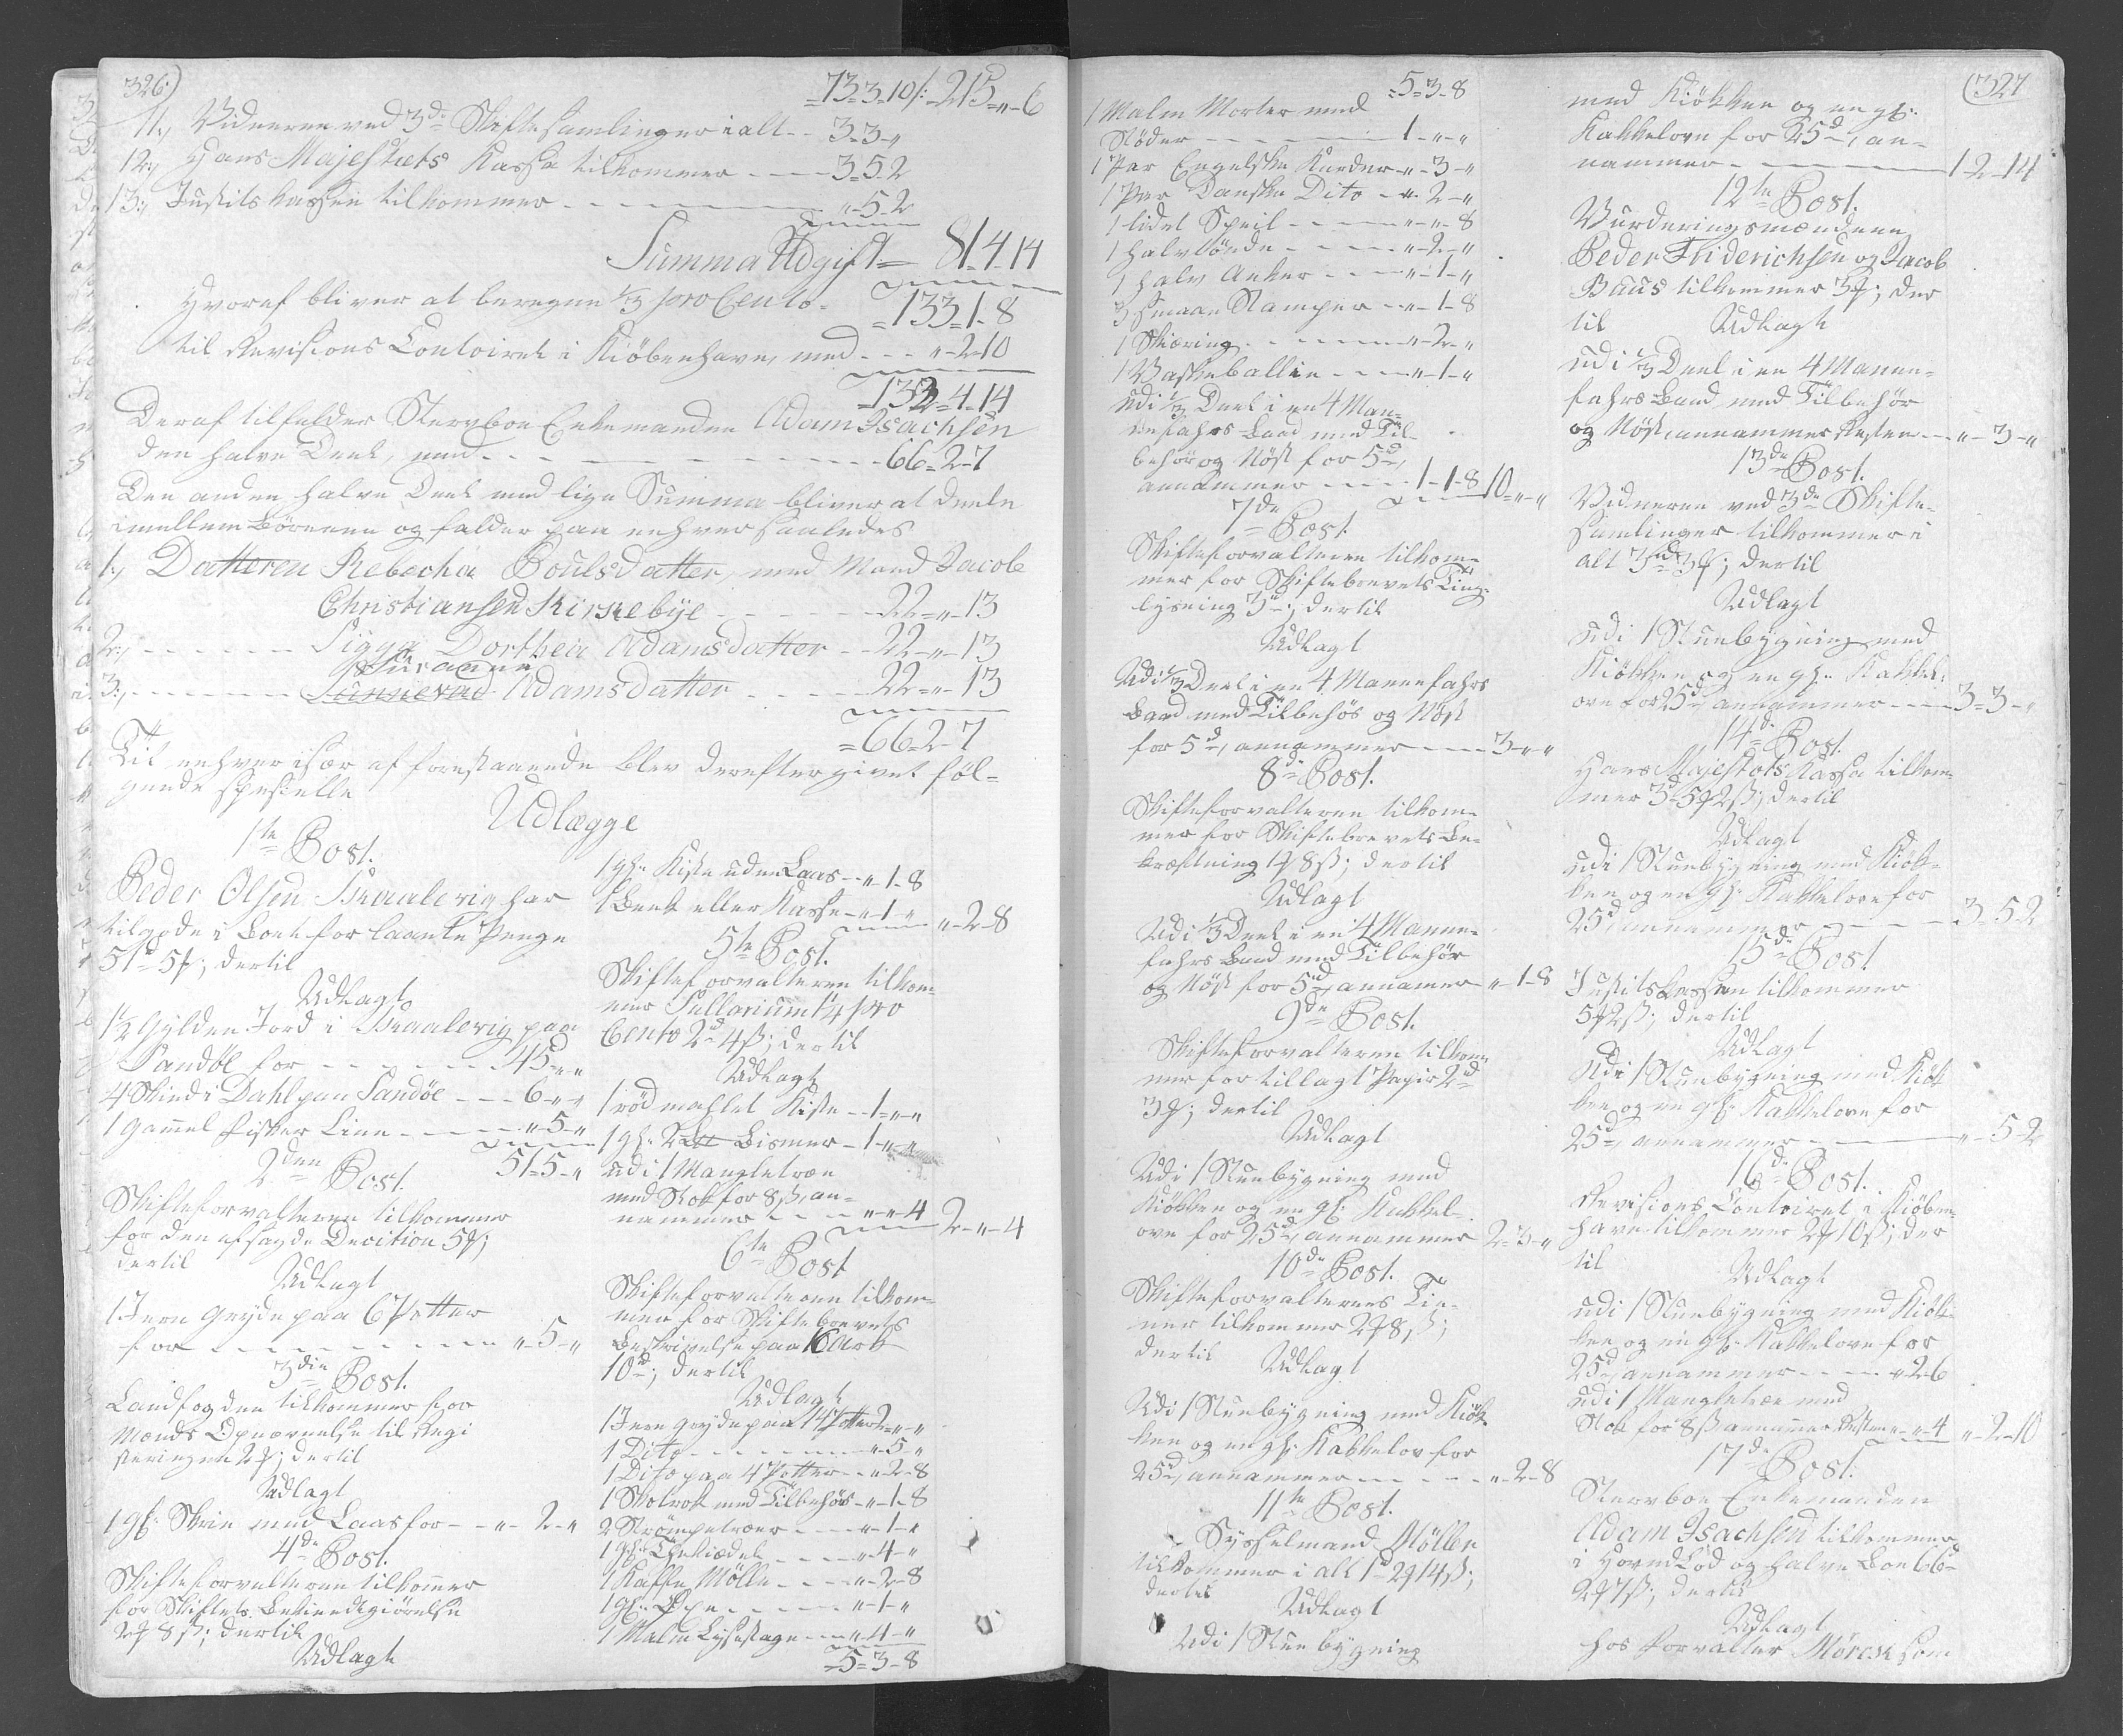 326.)
= 73 = 3 - 10 /: - 215 - „ - 6
11., Vidnerne ved 3de Skiftesamlinger i alt - - 3 - 3 - „
12., Hans Majestæts Kassa tilkommer - - - - 3 - 5 - 2
13., Justits Kassen tilkommer - - - - „ - 5 - 2
Summa Udgift = 81 - 4 - 14
Hvoraf bliver at beregne 1/3 pro Cento = 133 = 1 - 8
til Revisions Contoiret i Kiöbenhavn, med - - - „ - 2 - 10
= 132 = 4 - 14
Deraf tilfalder Stervboe Enkemanden Adam Isachsen
den halve Deel, med - - - - 66 = 2 - 7
Den anden halve Deel med lige Summa bliver at deele
imellem Börnene og falder paa enhver saaledes
1., Datteren Rebecha Poulsdatter, med Mand Jacob
Christiansen Kirkebÿe - - - - 22 = „ - 13
2., - - - - Sigga Dorthea Adamsdatter - - 22 - „ - 13
Susanne
3., - - - - Sunneva Adamsdatter - - - - 22 = „ - 13
= 66 = 2 - 7
Til enhver især af forestaaende blev derefter givet föl-
gende specielle
Udlægge
1te Post.
Peder Olsen Skaalevig har
tilgode i Boet for laante Penge
51d 5f; dertil
Udlagt
1 1/2 Gÿlden Jord i Skaalevig paa
Sandöe for - - - - 45 - „ - „
4 Skind i Dahl paa Sandöe - - - 6 - „ - „
1 gammel Fisker Line - - - - „ - 5 - „
51 = 5 - „
2den Post.
Skifteforvalteren tilkommer
for den afsagde Decition 5f;
dertil
Udlagt
1 Jern Gryde paa 6 Potter
for - - - - „ - 5 - „
3die Post.
Landfogden tilkommer for
Mænds Opnævnelse til Regi
steringen 2f; dertil
Udlagt
1 gl. Skrin med Laas for - - „ - 2 - „
4de Post.
Skifteforvalteren tilkommer
for Skiftets Bekiendtgiörelse
2f 8ß; dertil
Udlagt
1 gl. Kiste uden Laas - - „ - 1 - 8
1 Benk eller Kasse - „ - 1 - „ „ - 2 - 8
5te Post.
Skifteforvalteren tilkom-
mer Sallarium 1 1/4 pro
Cento 2d 4ß; dertil
Udlagt
1 röd mahlet Kiste - - 1 - „ - „
1 gl. Bismer - 1 - „ - „
udi 1 Mangletræe
med Stok for 8ß, an-
nammer - - - „ - „ - 4 2 - „ - 4
6te Post
Skifteforvalteren tilkom-
mer for Skiftebrevets
Beskrivelse paa 16 Ark
10d; dertil
Udlagt
1 Jern Gryde paa 14 Potter 2 - „ - „
1 Dito - - - - „ - 5 - „
1 Dito paa 4 Potter - - „ - 2 - 8
1 Skotrok med Tilbehör - „ - 1 - 8
2 Strömpetræer - - - „ - 1 - „
1 gl. Theekiædel - - - „ - 4 - „
1 Kaffe Mölle - - - „ - 2 - 8
1 gl. Öxe - - - - „ - 1 - „
1 Malm Lysestage - - „ - 4 - „
= 5 = 3 - 8
(327
= 5 = 3 - 8
1 Malm Morter med
Stöder - - - - 1 - „ - „
1 Par Engelske Karder - „ - 3 - „
1 Par Danske Dito - „ - 2 - „
1 lidet Speil - - - - „ - „ - 8
1 halv Tönde - - - - „ - 2 - „
1 halv Anker - - - „ - 1 - „
3 smaae Stamper - - „ - 1 - 8
1 Skiæring - - - - „ - 2 - „
1 Vaskeballie - - - „ - 1 - „
udi 1/3 Deel i en 4 Man-
defahrs Baad med Til-
behör og Nöst for 5d,
annammer - - - - 1 - 1 - 8 10 = „ - „
7de Post
Skifteforvalteren tilkom-
mer for Skiftebrevets Ting-
lysning 3d; dertil
Udlagt
Udi 1/3 Deel i en 4 Mannefahrs
Baad med Tilbehör og Nöst
for 5d, annammer - - - 3 - „ - „
8de Post.
Skifteforvalteren tilkom-
mer for Skiftebrevets Be-
kræftning 1f 8ß; dertil
Udlagt
Udi 1/3 Deel i en 4 Manne-
fahrs Baad med Tilbehör
og Nöst for 5d, annammer „ - 1 - 8
9de Post.
Skifteforvalteren tilkom-
mer for tillagt Papir 2d
3f; dertil
Udlagt
Udi 1 Stuebygning med
Kiökken og en gl. Kakkel-
ovn for 25d, annammer 2 - 3 - „
10de Post.
Skifteforvalterens Tie-
ner tilkommer 2f 8ß;
dertil Udlagt
Udi 1 Stuebygning med Kiök-
ken og en gl. Kakkelov for
25d, annammer - - - - „ - 2 - 8
11te Post.
Sysselmand Möller
tilkommer i alt 1d 2f 14ß;
dertil
Udlagt
Udi 1 Stuebygning
med Kiökken og en gl.
Kakkelovn for 25d, an-
nammer - - - - 1 - 2 - 14
12te Post.
Vurderingsmændene
Peder Friderichsen og Jacob
Baus tilkommer 3f; der
til Udlagt
udi 1/3 Deel i en 4 Manne-
fahrs Baad med Tilbehör
og Nöst, annammer Resten - - „ - 3 - „
13de Post.
Vidnerne ved 3de Skifte-
samlinger tilkommer i
alt 3d 3f; dertil
Udlagt
udi 1 Stuebygning med
Kiökken og en gl. Kakkel-
ovn for 25d, annammer - - - 3 - 3 - „
14de Post.
Hans Majestæts Kassa tilkom-
mer 3d 5f 2ß; dertil
Udlagt
udi 1 Stuebygning med Kiök-
ken og en gl. Kakkelovn for
25d, annammer - - - 3 - 5 - 2
15de Post
Justitskassen tilkommer
5f 2ß; dertil
Udlagt
Udi 1 Stuebygning med Kiök
ken og en gl. Kakkelovn for
25d, annammer - - - „ - 5 - 2
16de Post.
Revisions Contoiret i Kiöben-
havn tilkommer 2f 10ß; der
til Udlagt
udi 1 Stuebygning med Kiök-
ken og en gl. Kakkelovn for
25d, annammer - - - „ - 2 - 6
udi 1 Mangletræe med
Stok for 8ß annammer Restene - „ - 4 „ - 2 - 10
17de Post.
Stervboe Enkemanden
Adam Isachsen tilkommer
i Hovedlod og halve Boe 66d
2f 7ß; dertil
Udlagt
hos Forvalter Mörch som